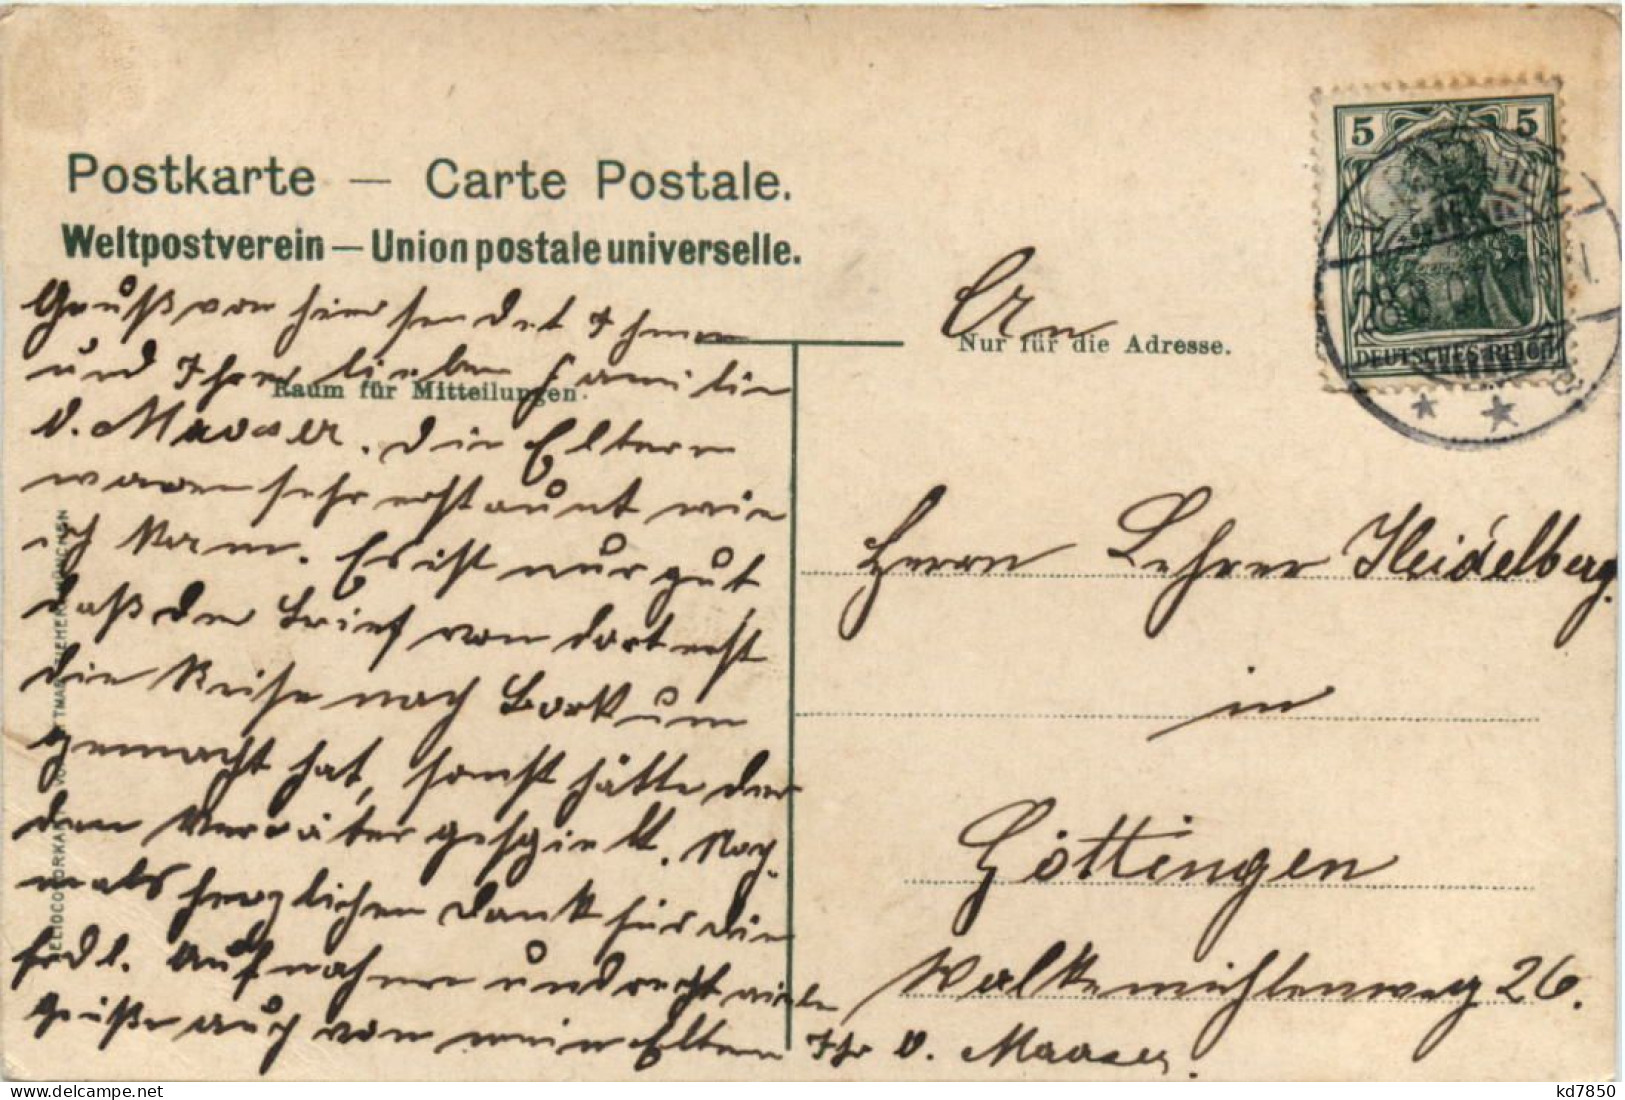 Postkarte — Carte Postale.
Weltpostverein — Union postale universelle.
5 5
28.8.07
DEUTSCHES REICH
* *
Nur für die Adresse.
Raum für Mitteilungen.
Gruß von hier sendet Ihnen
und Ihrer lieben Familie
D. Maaser. Die Eltern
waren sehr erstaunt wie
ich kam. Es ist nur gut
daß der Brief von dort erst
die Reise nach Borkum
gemacht hat, sonst hätte der
den Verräter gespielt. Noch-
mals herzlichen Dank für die
frdl. Aufnahme und recht viele
Grüße auch von mein Eltern
Ihr D. Maaser.
An
Herrn Lehrer Heidelberg.
in
Göttingen
Walkemühlenweg 26.
MÜNCHEN
kd7850